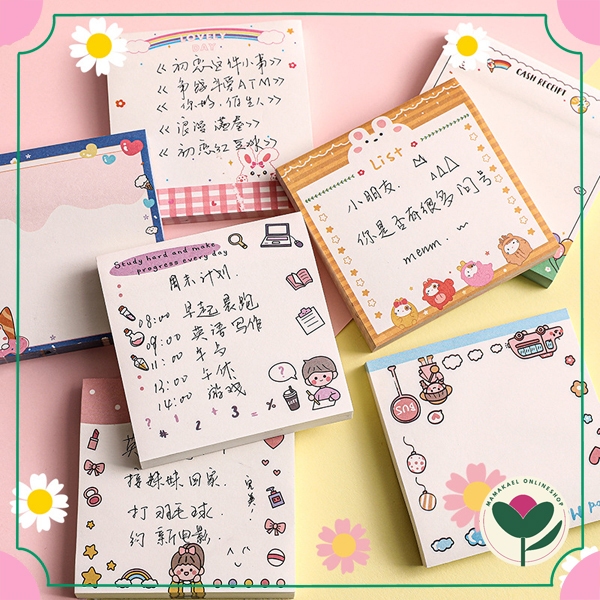 LOVELY
DAY
《初恋这件小事》
《你好,陌生人》
《初恋红豆冰》
CASH RECEIPT
List
小朋友.
你是否有很多问号
Study hard and make
progress every day
周末计划:
08:00 早起晨跑
09:00 英语写作
11:00 午与
13:00 午休
14:00 游戏
? 1 2 + 3 ÷ %
?
BUS
接妹妹回家.
打羽毛球.
约新电影.
MAMAKAEL ONLINESHOP